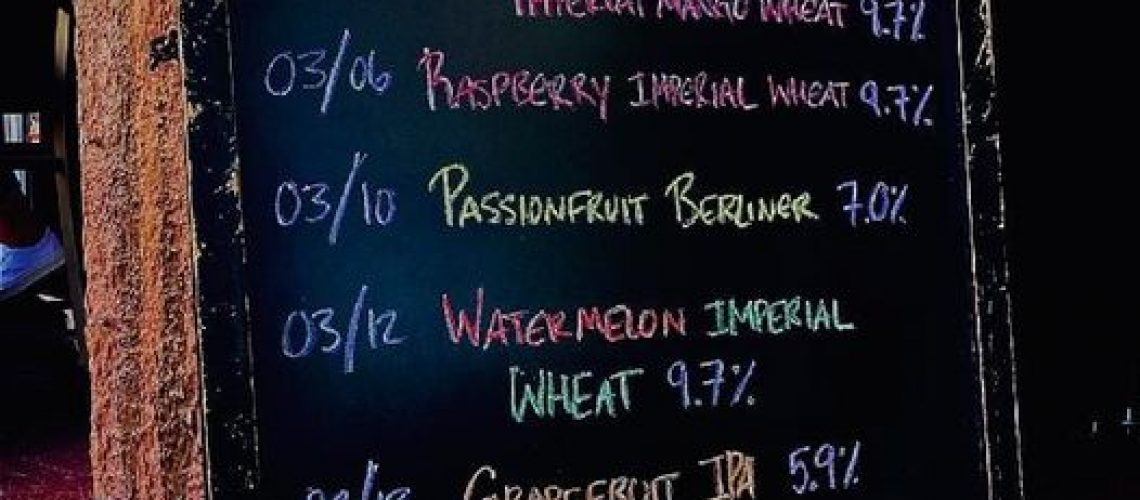 IMPERIAL MANGO WHEAT 9.7%
03/06 RASPBERRY IMPERIAL WHEAT 9.7%
03/10 PASSIONFRUIT BERLINER 7.0%
03/12 WATERMELON IMPERIAL
WHEAT 9.7%
GRAPEFRUIT IPA 5.9%